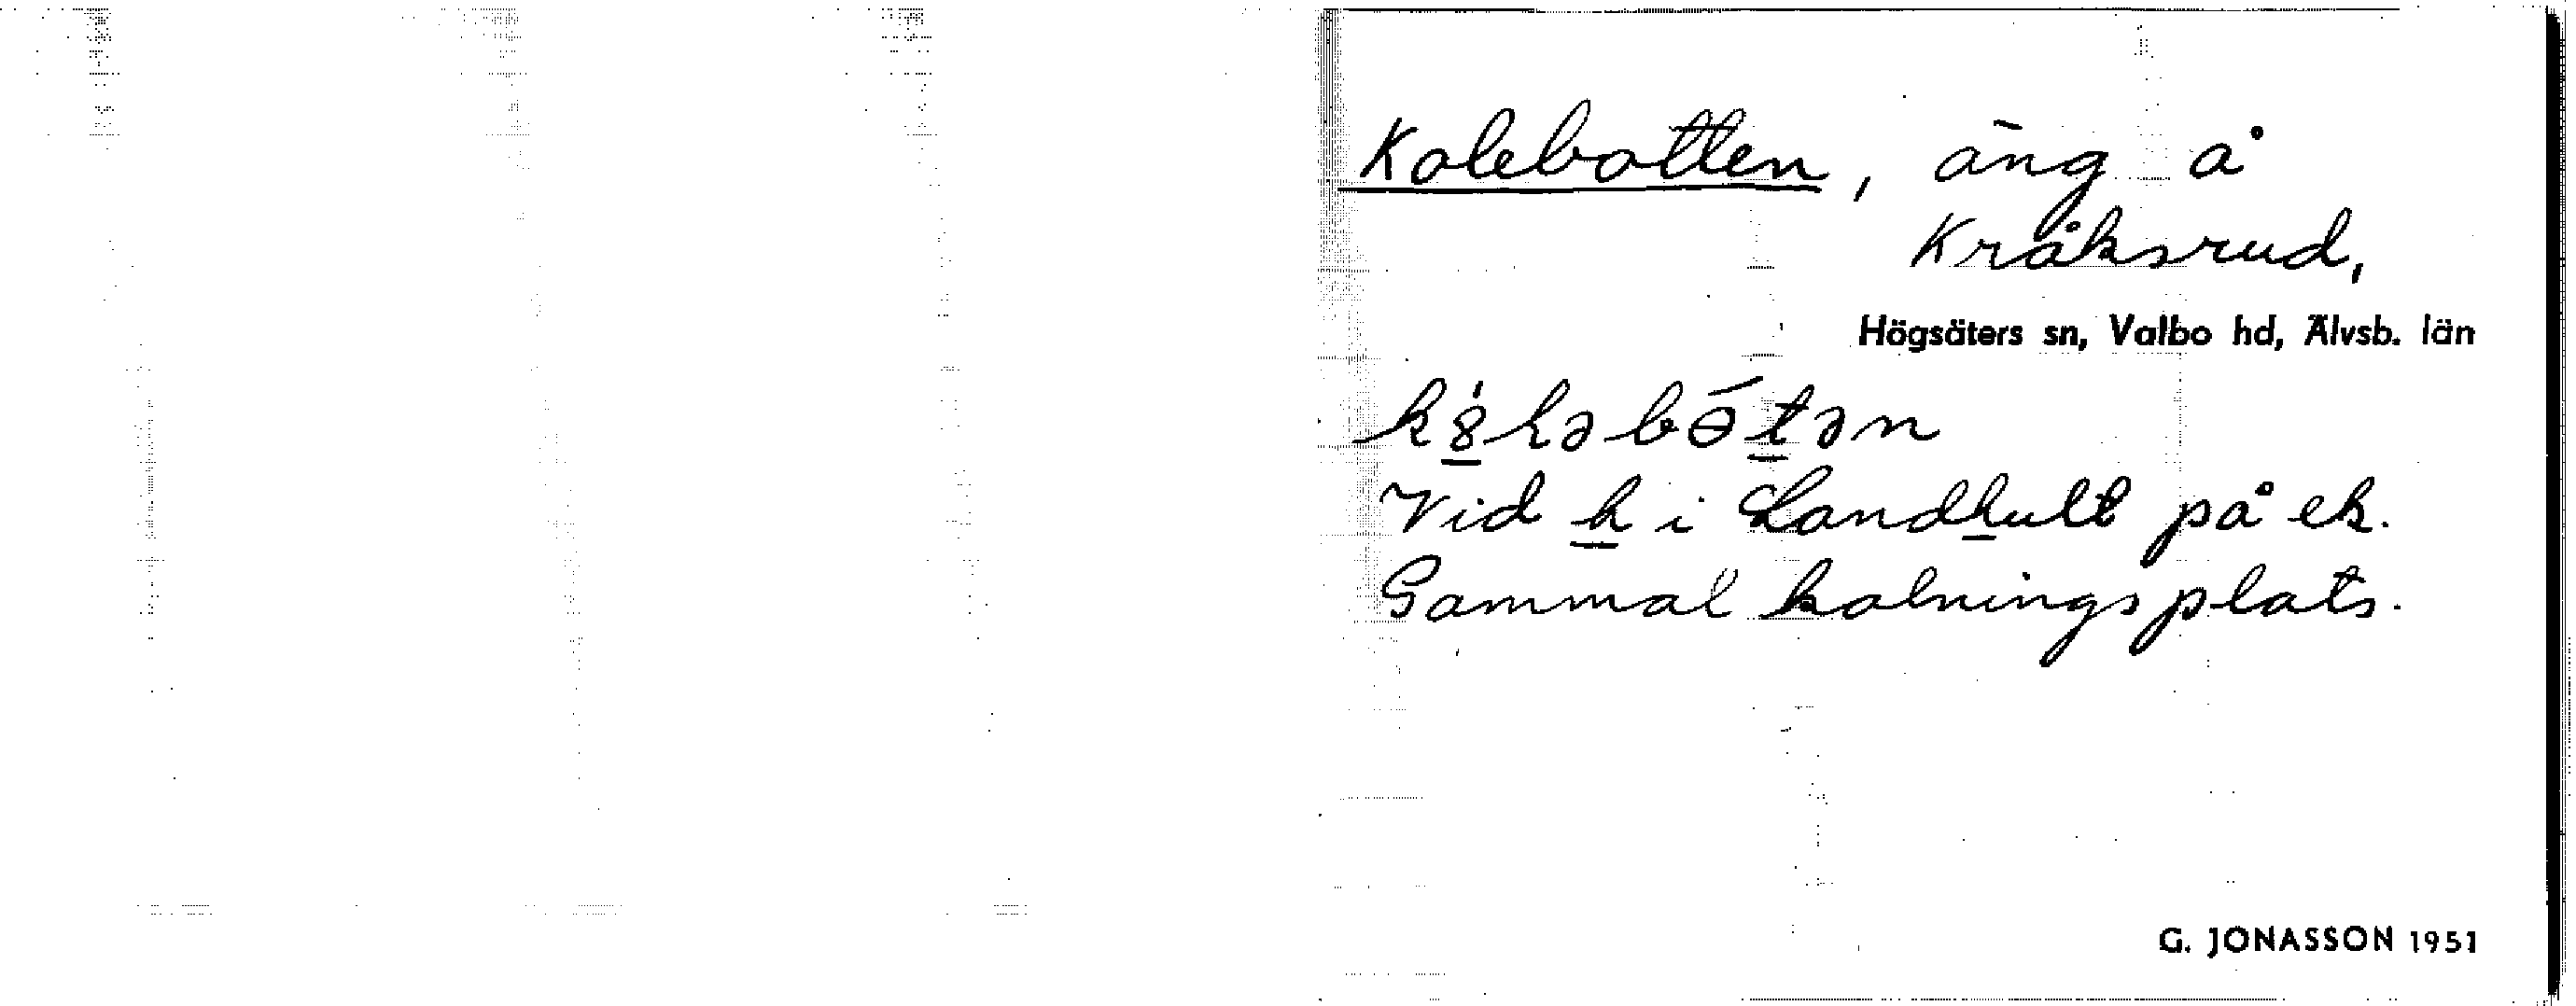 Kolebotten, äng å
Kråksrud,
Högsäters sn, Valbo hd, Älvsb. län
Vid k i Landhult på ek.
Gammal kolningsplats.
G. JONASSON 1951